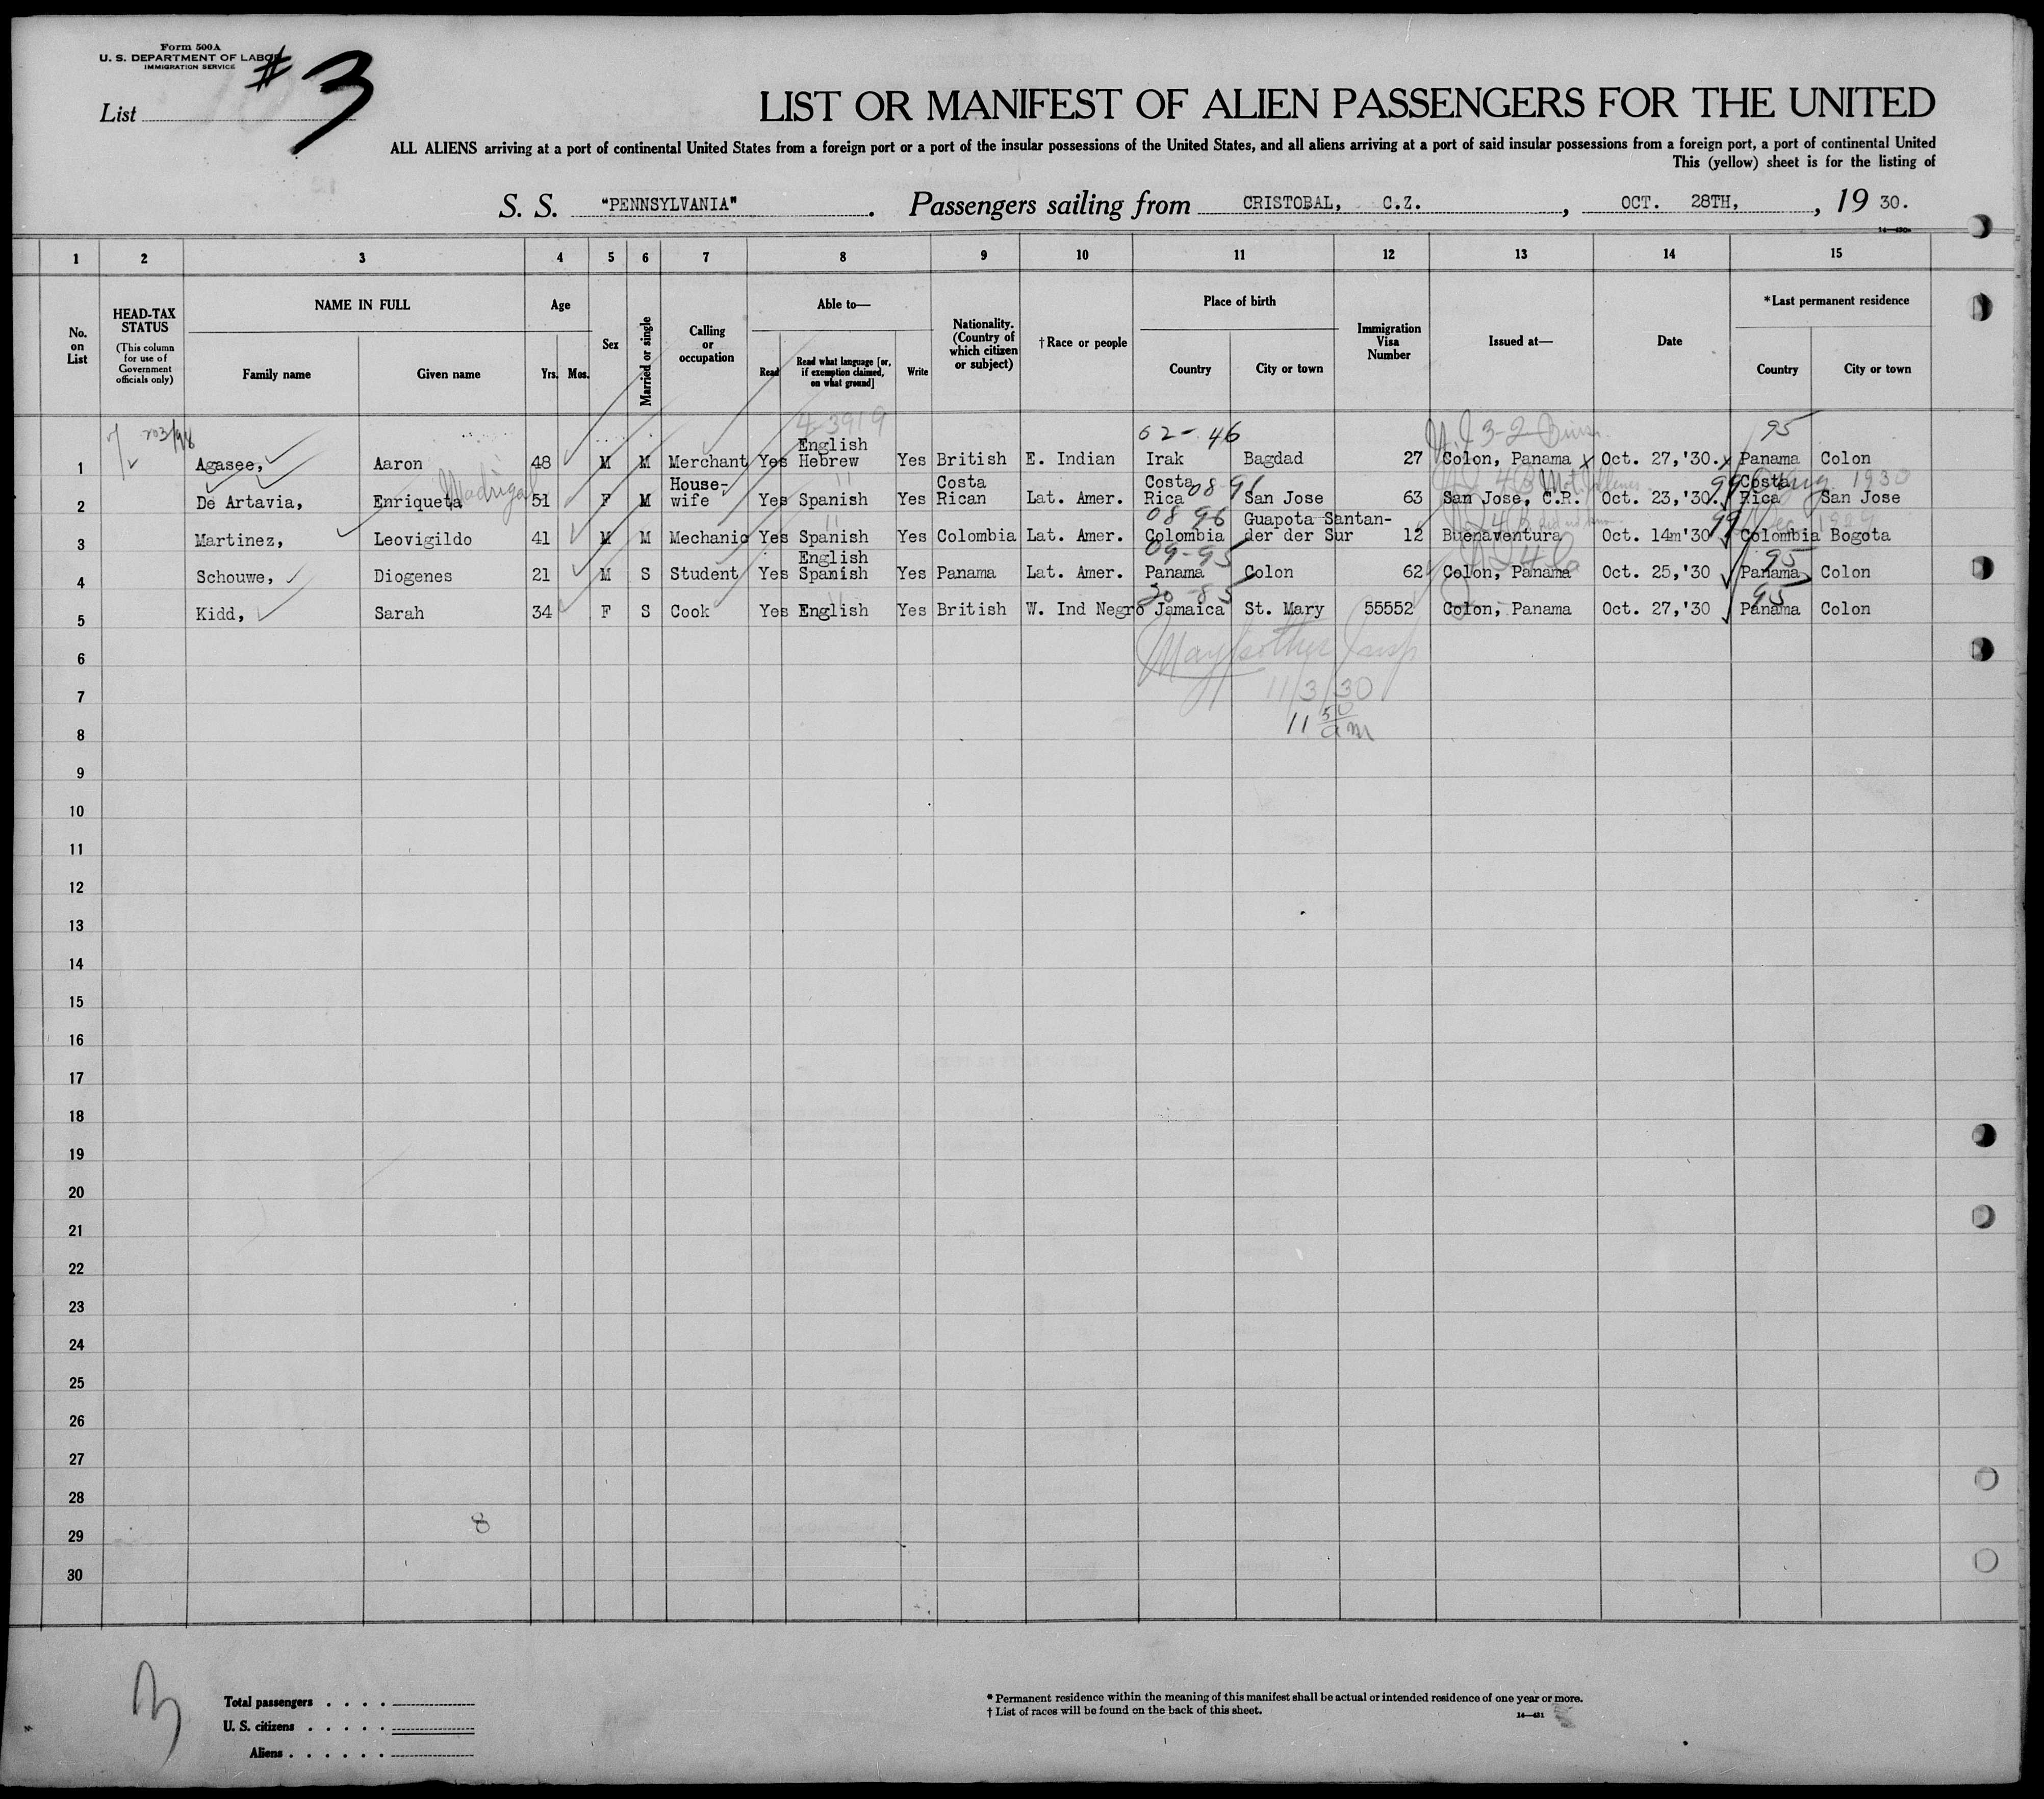 Form 500A
U. S. DEPARTMENT OF LABOR
IMMIGRATION SERVICE
# 3
List
LIST OR MANIFEST OF ALIEN PASSENGERS FOR THE UNITED
ALL ALIENS arriving at a port of continental United States from a foreign port or a port of the insular possessions of the United States, and all aliens arriving at a port of said insular possessions from a foreign port, a port of continental United
This (yellow) sheet is for the listing of
S. S. "PENNSYLVANIA". Passengers sailing from CRISTOBAL, C.Z., OCT. 28TH, , 19 30.
1 2 3 4 5 6 7 8 9 10 11 12 13 14 15
No. on List
HEAD-TAX STATUS
(This column for use of Government officials only)
NAME IN FULL
Family name Given name
Age
Yrs. Mos.
Sex
Married or single
Calling or occupation
Able to—
Read
Read what language [or, if exemption claimed, on what ground]
Write
Nationality. (Country of which citizen or subject)
†Race or people
Place of birth
Country City or town
Immigration Visa Number
Issued at—
Date
*Last permanent residence
Country City or town
4-3919
62-46
95
1 Agasee, Aaron 48 M M Merchant Yes English Hebrew Yes British E. Indian Irak Bagdad 27 Colon, Panama Oct. 27,'30. Panama Colon
Madrigal
08-91
99
1930
2 De Artavia, Enriqueta 51 F M House-wife Yes Spanish Yes Costa Rican Lat. Amer. Costa Rica San Jose 63 San Jose, C.R. Oct. 23,'30. Costa Rica San Jose
08 96
99
3 Martinez, Leovigildo 41 M M Mechanic Yes Spanish Yes Colombia Lat. Amer. Colombia Guapota Santan-der der Sur 12 Buenaventura Oct. 14m'30 Colombia Bogota
09-95
95
4 Schouwe, Diogenes 21 M S Student Yes English Spanish Yes Panama Lat. Amer. Panama Colon 62 Colon, Panama Oct. 25,'30 Panama Colon
30-85
95
5 Kidd, Sarah 34 F S Cook Yes English Yes British W. Ind Negro Jamaica St. Mary 55552 Colon, Panama Oct. 27,'30 Panama Colon
6
7
11/3/30
8
11 50 am
9
10
11
12
13
14
15
16
17
18
19
20
21
22
23
24
25
26
27
28
29
8
30
Total passengers . . . .
U. S. citizens . . . . .
Aliens . . . . . .
* Permanent residence within the meaning of this manifest shall be actual or intended residence of one year or more.
† List of races will be found on the back of this sheet.
14—431